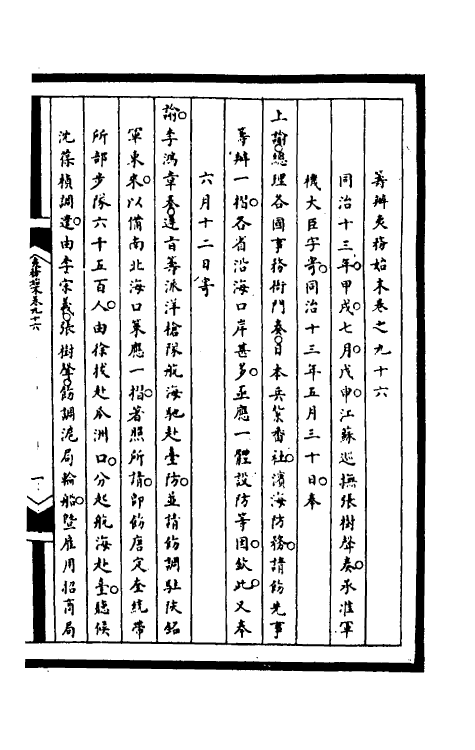 籌辦夷務始末卷之九十六
同治十三年甲戌七月戊申江蘇巡撫張樹聲奏承准軍
機大臣字寄同治十三年五月三十日奉
上諭總理各國事務衙門奏日本兵紮番社濱海防務請飭先事
籌辦一摺各省沿海口岸甚多亟應一體設防等因欽此又奉
六月十二日寄
諭李鴻章奏遵旨籌派洋槍隊航海馳赴臺防並請飭調駐陝銘
軍東來以備南北海口策應一摺著照所請即飭唐定奎統帶
所部步隊六千五百人由徐拔赴瓜洲口分起航海赴臺聽候
沈葆楨調遣由李宗羲張樹聲飭調滬局輪船暨雇用招商局
籌辦夷務始末卷九十六
一